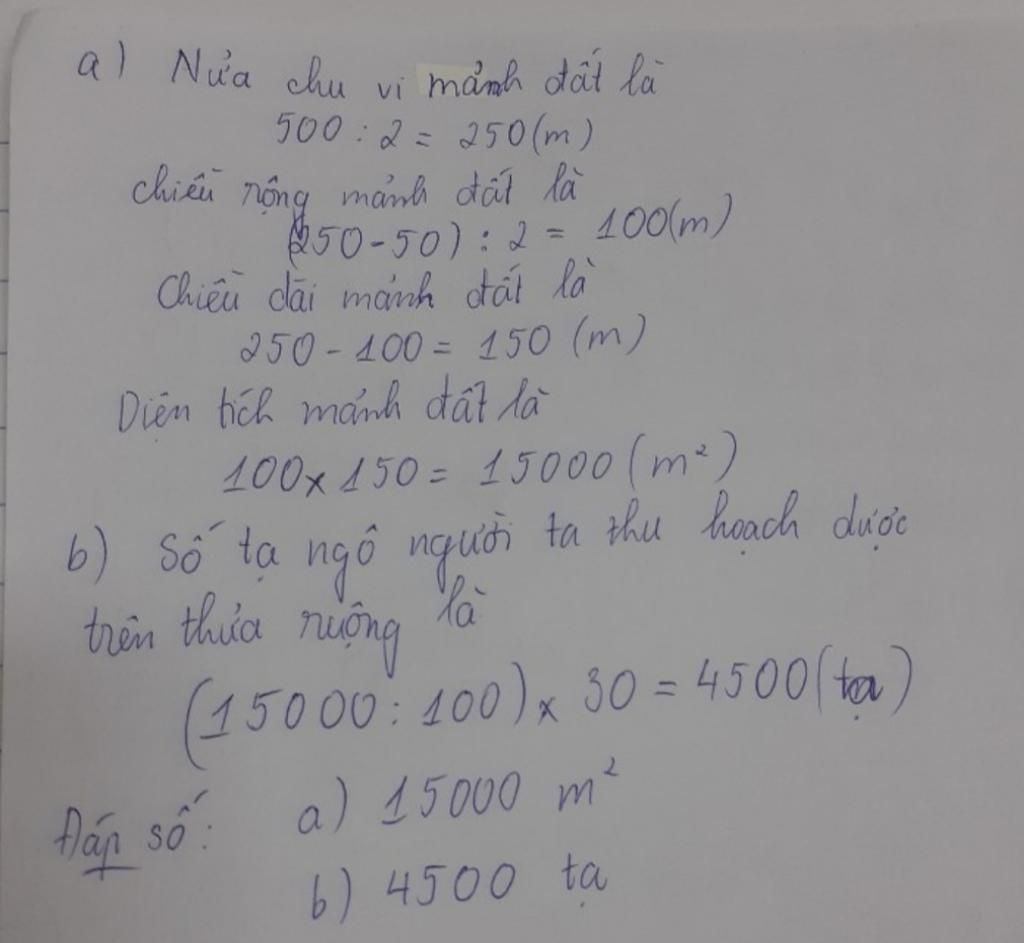 a) Nửa chu vi mảnh đất là
500 : 2 = 250(m)
chiều rộng mảnh đất là
(250-50) : 2 = 100(m)
Chiều dài mảnh đất là
250 - 100 = 150 (m)
Diện tích mảnh đất là
100 x 150 = 15000 (m²)
b) Số tạ ngô người ta thu hoạch được
trên thửa ruộng là
(15000 : 100) x 30 = 4500 (tạ)
Đáp số: a) 15000 m²
b) 4500 tạ